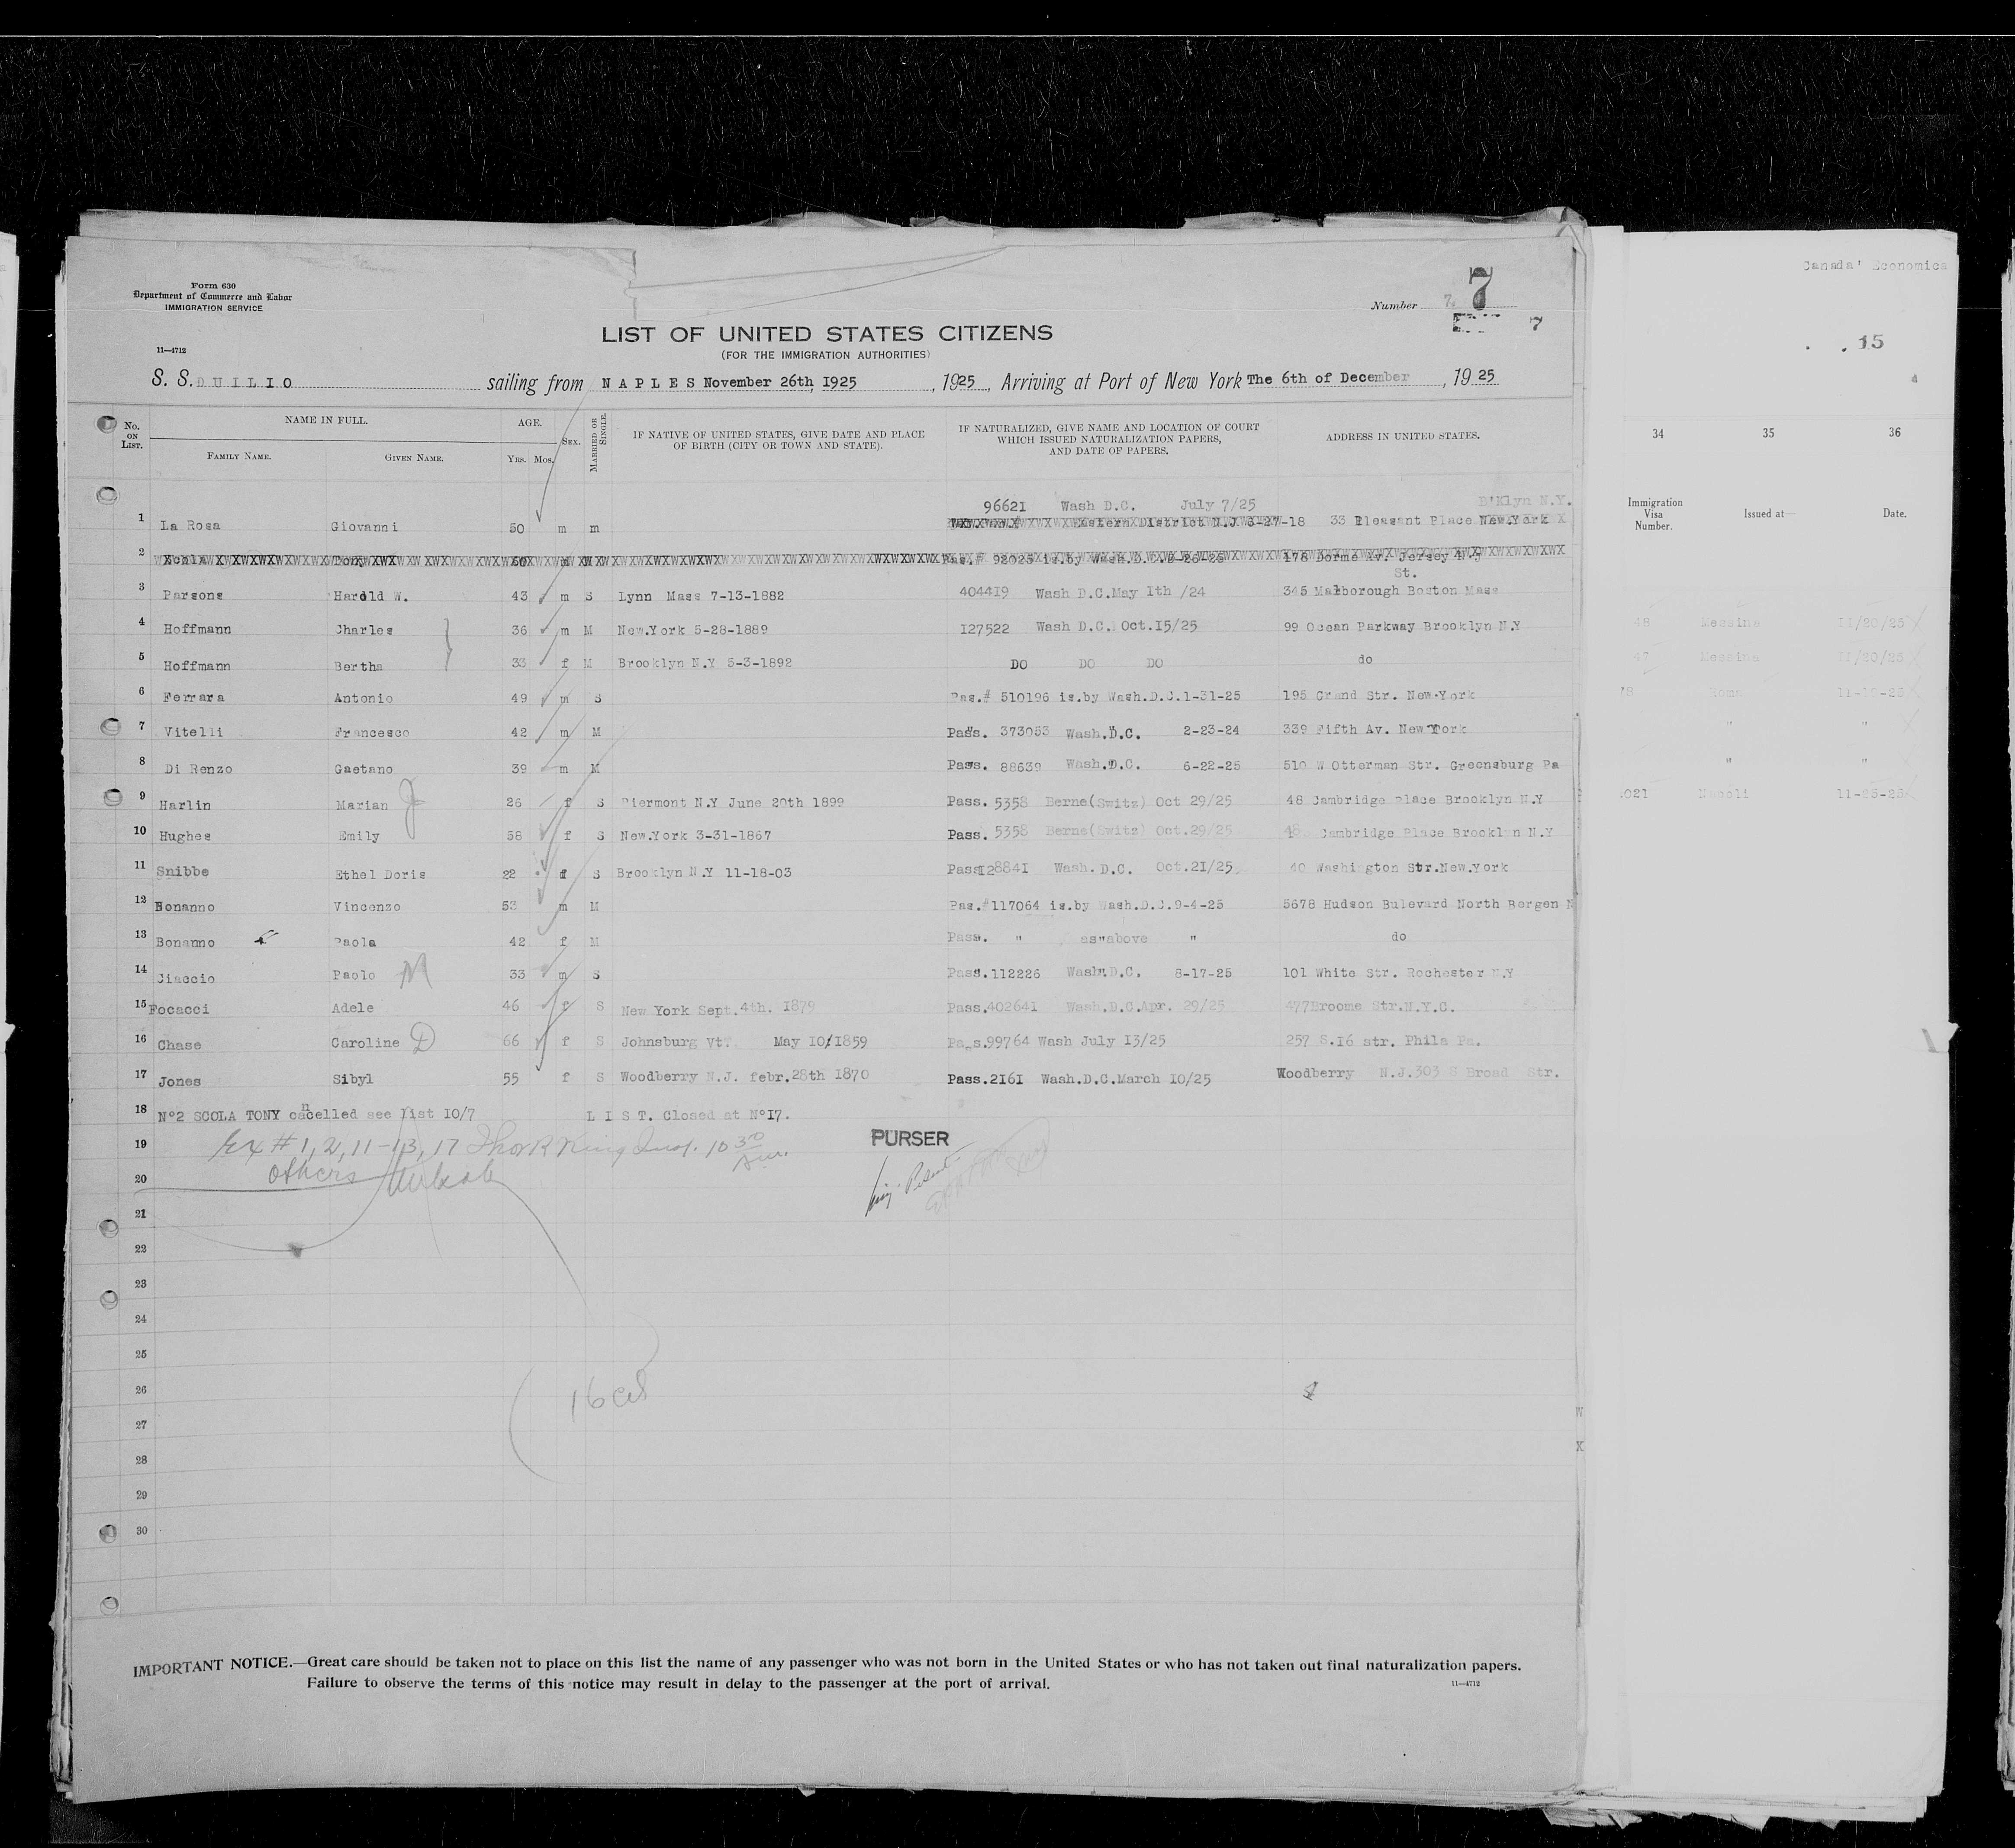 Canada' Economica
Form 630
Department of Commerce and Labor
IMMIGRATION SERVICE
Number 7. 7
7
15
LIST OF UNITED STATES CITIZENS
(FOR THE IMMIGRATION AUTHORITIES)
11—4712
S. S. DUILIO sailing from NAPLES November 26th, 1925, 1925, Arriving at Port of New York The 6th of December, 1925
No. ON LIST. NAME IN FULL. AGE. SEX. MARRIED OR SINGLE. IF NATIVE OF UNITED STATES, GIVE DATE AND PLACE OF BIRTH (CITY OR TOWN AND STATE). IF NATURALIZED, GIVE NAME AND LOCATION OF COURT WHICH ISSUED NATURALIZATION PAPERS, AND DATE OF PAPERS. ADDRESS IN UNITED STATES.
FAMILY NAME. GIVEN NAME. YRS. MOS.
34 35 36
Immigration Visa Number. Issued at— Date.
96621 Wash D.C. July 7/25 B'Klyn N.Y.
1 La Rosa Giovanni 50 m m Eastern District N.J 3-27-18 33 Pleasant Place New.York
2 Scola Tony is.by Wash.D.C. 176 Av. Jersey
St.
3 Parsons Harold W. 43 m S Lynn Mass 7-13-1882 404419 Wash D.C.May 1th /24 345 Marborough Boston Mass
4 Hoffmann Charles 36 m M New.York 5-28-1889 127522 Wash D.C. Oct.15/25 99 Ocean Parkway Brooklyn N.Y
48 Messina 11/20/25
5 Hoffmann Bertha 33 f M Brooklyn N.Y 5-3-1892 DO DO DO do
47 Messina 11/20/25
6 Ferrara Antonio 49 m S Pas.# 510196 is.by Wash.D.C.1-31-25 195 Grand Str. New-York
78 Roma 11-19-25
7 Vitelli Francesco 42 m M Pass. 373053 Wash.D.C. 2-23-24 339 Fifth Av. New York
" "
8 Di Renzo Gaetano 39 m M Pass. 88639 Wash.D.C. 6-22-25 510 W Otterman Str. Greensburg Pa
" "
9 Harlin Marian J 26 f S Piermont N.Y June 20th 1899 Pass. 5358 Berne(Switz) Oct 29/25 48 Cambridge Place Brooklyn N.Y
021 Napoli 11-25-25
10 Hughes Emily 58 f S New.York 3-31-1867 Pass. 5358 Berne(Switz) Oct.29/25 48 Cambridge Place Brooklyn N.Y
11 Snibbe Ethel Doris 22 f S Brooklyn N.Y 11-18-03 Pass128841 Wash. D.C. Oct.21/25 40 Washington Str.New.York
12 Bonanno Vincenzo 53 m M Pas.#117064 is.by Wash.D.C.9-4-25 5678 Hudson Bulevard North Bergen N
13 Bonanno Paola 42 f M Pass. " as"above " do
14 Ciaccio Paolo M 33 m S Pass.112226 Wash.D.C. 8-17-25 101 White Str. Rochester N.Y
15 Focacci Adele 46 f S New York Sept.4th. 1879 Pass.402641 Wash.D.C.Apr. 29/25 477Broome Str.N.Y.C.
16 Chase Caroline D 66 f S Johnsburg Vt. May 10/1859 Pass.99764 Wash July 13/25 257 S.16 str. Phila Pa.
17 Jones Sibyl 55 f S Woodberry N.J. febr.28th 1870 Pass.2161 Wash.D.C.March 10/25 Woodberry N.J.303 S Broad Str.
18 N°2 SCOLA TONY cancelled see list 10/7 LIST. Closed at N°17.
19 Ex # 1, 2, 11-13, 17 Thos R King Insp. 10 30 Am. PURSER
20 others
21
22
23
24
25
26 16
27
28
29
30
IMPORTANT NOTICE.—Great care should be taken not to place on this list the name of any passenger who was not born in the United States or who has not taken out final naturalization papers.
Failure to observe the terms of this notice may result in delay to the passenger at the port of arrival.
11—4712